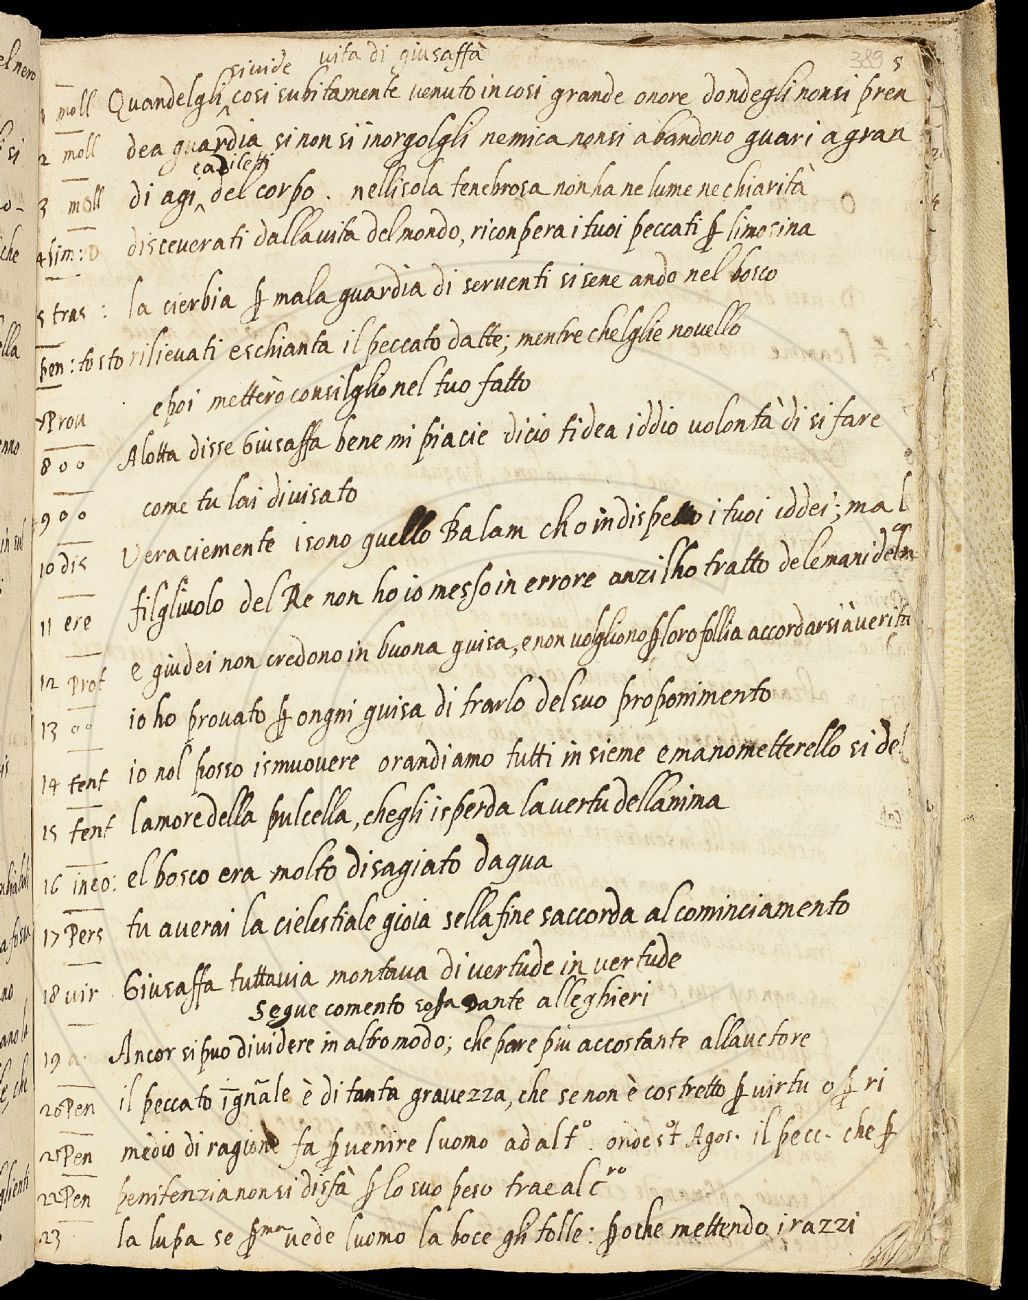 vita di giusaffà
383 5
si vide
1 moll Quandelgli cosi subitamente venuto in cosi grande onore dondegli non si pren
2 moll dea guardia si non si inorgolgli nemica non si abandono guari a gran
e a diletti
3 moll di agi del corpo . nell isola tenebrosa non ha ne lume ne chiarità
4 sim: disceverati dalla vita del mondo, riconpera i tuoi peccati ꝑ limosina
5 tras : la cierbia ꝑ mala guardia di serventi si sene ando nel bosco
pen : tosto rilievati e schianta il peccato datte; mentre chelglie novello
7 Prou e poi metterò consilglio nel tuo fatto
8 o o Alotta disse Giusaffa bene mi piacie dicio ti dea iddio volontà di si fare
9 o o come tu lai divisato
10 dis Veraciemente isono quello Balam cho in dispetto i tuoi iddei; ma l
11 ere filglivolo del Re non ho io messo in errore anzi lho tratto de le mani del
12 Prof e giudei non credono in buona guisa, e non volgliono ꝑ loro follia accordarsi à verità
13 o o io ho provato ꝑ ongni guisa di trarlo del suo proponimento
14 tent io nol posso ismuovere orandiamo tutti in sieme e manometterello si del
15 tent lamore della pulcella, chegli isperda la vertu dellanima
16 ineo: el bosco era molto disagiato dagua
17 Pers tu averai la cielestiale gioia sella fine saccorda al cominciamento
18 vir Giusaffa tuttavia montava di vertude in vertude
Segue comento sosa Dante alleghieri
19 a. Ancor si puo dividere in altro modo; che pare piu accostante allauctore
20 Pen il peccato ign̄ale è di tanta gravezza, che se non è costretto ꝑ virtu o ꝑ ri
21 Pen medio di ragione fa ꝑvenire luomo ad altº. onde sºt Agos. il pecc. che ꝑ
22 Pen penitenzia non si disfà ꝑ lo suo peso trae al cʳº
23 la lupa se ꝑᵐᵃ vede luomo la boce gli tolle: ꝑoche mettendo i razzi